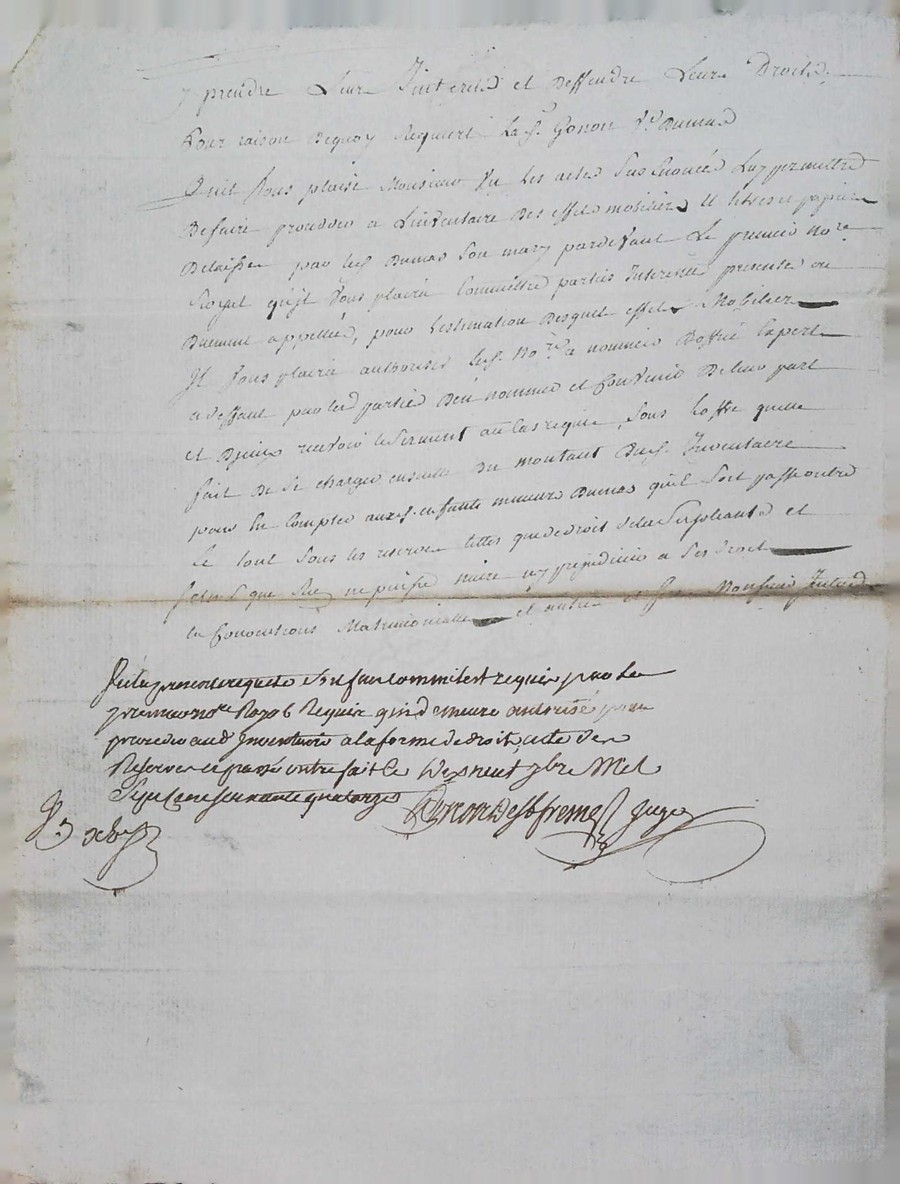 y prendre Leur Jinterets et deffendre Leurs Droits
Pour raison dequoy Requiert La S. Gonon V.e Dumas
Quil Vous plaise Monsieur Vu les actes Sus Enoncé Luy permettre
Defaire proceder a Linventaire Des effets mobiliers et titres et papiers
Delaissés par led. Dumas Son mary pardevant Le premier No.re
Royal quil Vous plaira Commettre parties Interessé presentes ou
Duement appellés, pour Lestimation Desquels effets Mobiliers
Il Vous plaira authoriser led. No.re a nommer Doffice Experts
a deffaut par les parties Den nommer et Convenir De leur part
et Diceux recevoir le Serment au Cas requis, Sous Loffre quelle
fait De Se charger ensuite Du montant Dud. Inventaire
pour En Compter auxd. enfants mineurs Dumas quil Soit passé outre
Le tout Sous les reserves telles que de droit De la Supliante et
Sans que Rien ne puisse nuire ny prejudicier a Ses Droits
Et Conventions Matrimoniales et autres et Sera
Vu la presente requete soit fait commil est requis par le
premier no.re Royal Requis qui demeure autorisé pour
proceder aud. Inventaire a la forme de droit, acte des
Reserves et passé outre fait le Dix neuf 7bre Mil
Sept Cent soixante quatorze
Juge